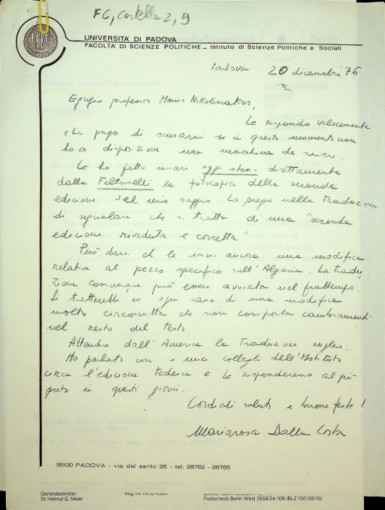 FC, Cartella 2, 9
UNIVERSITÀ DI PADOVA
FACOLTÀ DI SCIENZE POLITICHE – Istituto di Scienze Politiche e Sociali
Padova 20 dicembre 76
Egregio professor Marios Nikolinakos,
Le rispondo velocemente
e La prego di scusarmi se in questo momento non
ho a disposizione una macchina da scrivere.
Le ho fatto inviare oggi stesso direttamente
dalla Feltrinelli la fotocopia della seconda
edizione del mio saggio. La prego nella Traduzione
di segnalare che si tratta di una "seconda
edizione riveduta e corretta"
Può darsi che Le invii ancora una modifica
relativa al pezzo specifico sull'Algeria. La Tradu
zione comunque può essere avviata nel frattempo.
Si tratterebbe in ogni caso di una modifica
molto circoscritta che non comporta cambiamenti
nel resto del testo.
Attendo dall'America la Traduzione inglese.
Ho parlato con i miei colleghi dell'Istituto
circa l'edizione Tedesca e Le risponderemo al più
presto in questi giorni.
Cordiali saluti e buone feste!
Mariarosa Dalla Costa
35100 PADOVA - via del santo 28 - tel. 28762 - 28765
Generalsekretär
Dr. Helmut G. Meier
Postscheck Berlin West 2658 34-108 (BLZ 100 100 10)